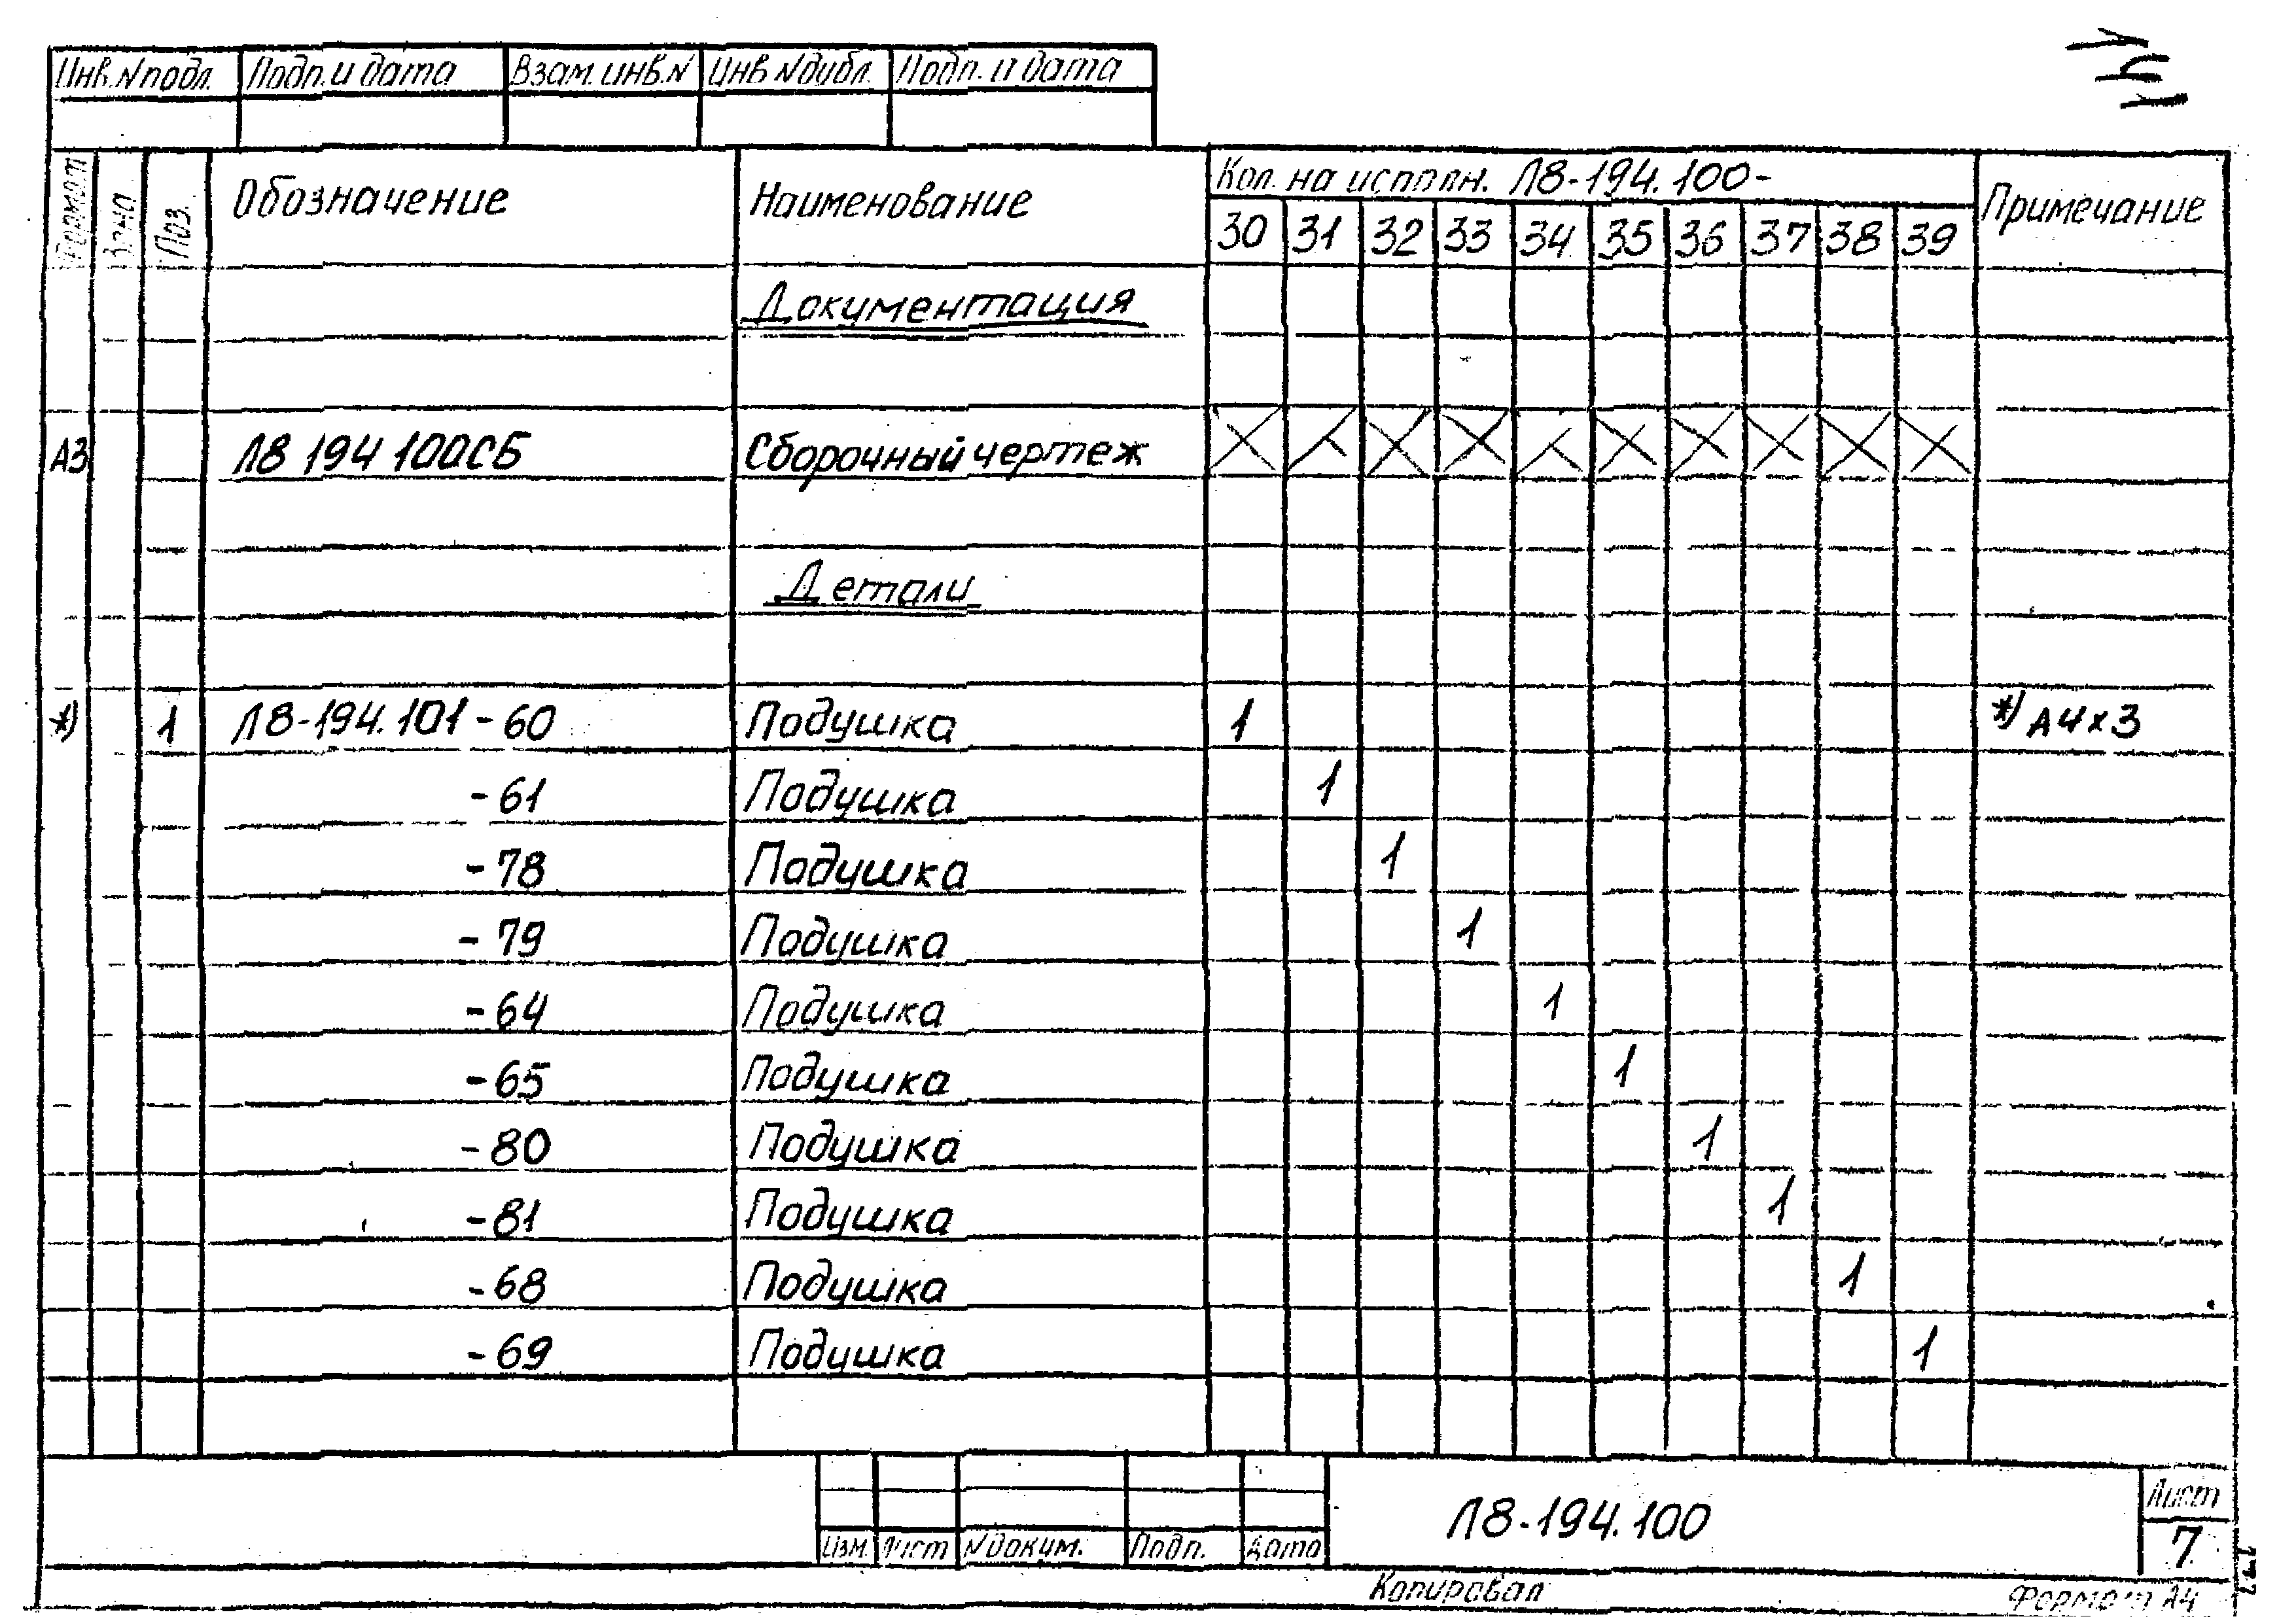 Инв.N подл. Подп. и дата Взам. инв. N Инв N дубл. Подп. и дата
Формат Зона Поз. Обозначение Наименование Кол. на исполн. Л8-194.100- Примечание
30 31 32 33 34 35 36 37 38 39
Документация
А3 Л8 194 100СБ Сборочный чертеж
Детали
*) 1 Л8-194.101-60 Подушка 1 *) А4х3
-61 Подушка 1
-78 Подушка 1
-79 Подушка 1
-64 Подушка 1
-65 Подушка 1
-80 Подушка 1
-81 Подушка 1
-68 Подушка 1
-69 Подушка 1
Изм. Лист N докум. Подп. Дата Л8-194.100 Лист
7
Копировал Формат А4